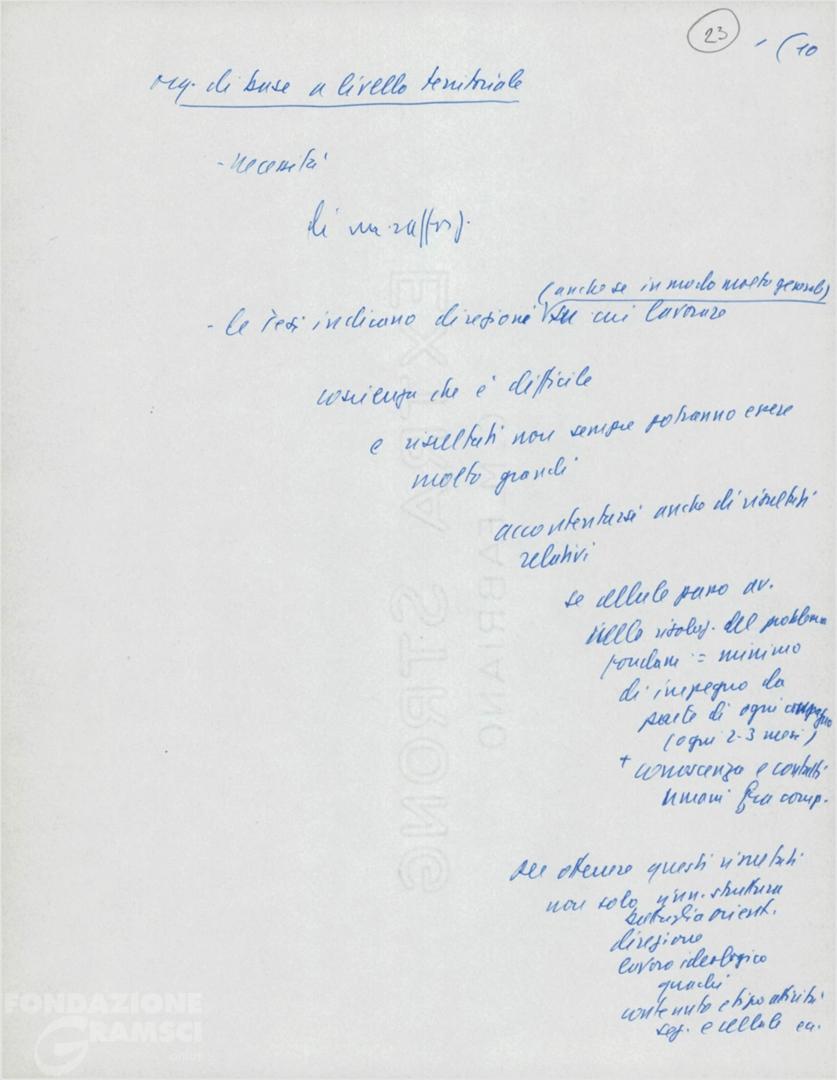 23 - (10
org. di base a livello territoriale
- necessità
di un raff
(anche se in modo molto generale)
- le Tesi indicano direzione su cui lavorare
coscienza che è difficile
e risultati non sempre potranno essere
molto grandi
accontentarsi anche di risultati
relativi
se cellule av.
nella risoluz. del problema
fondam = minimo
di impegno da
parte di ogni compagno
(ogni 2-3 mesi)
+ conoscenza e contatti
umani fra comp.
per ottenere questi risultati
non solo rinn. struttura
battaglia orient.
direzione
lavoro ideologico
quadri
contenuto e tipo attività
sez. e cellule
EXTRA STRONG
FABRIANO
FONDAZIONE
GRAMSCI